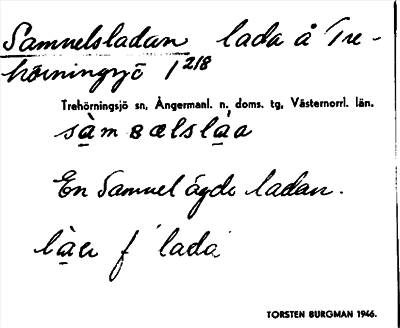 Samuelsladan lada å Tre-
hörningsjö 1 218
Trehörningsjö sn, Ångermanl. n. doms. tg, Västernorrl. län.
sàmɞælsláa
En Samuel ägde ladan.
làa f 'lada'
TORSTEN BURGMAN 1946.